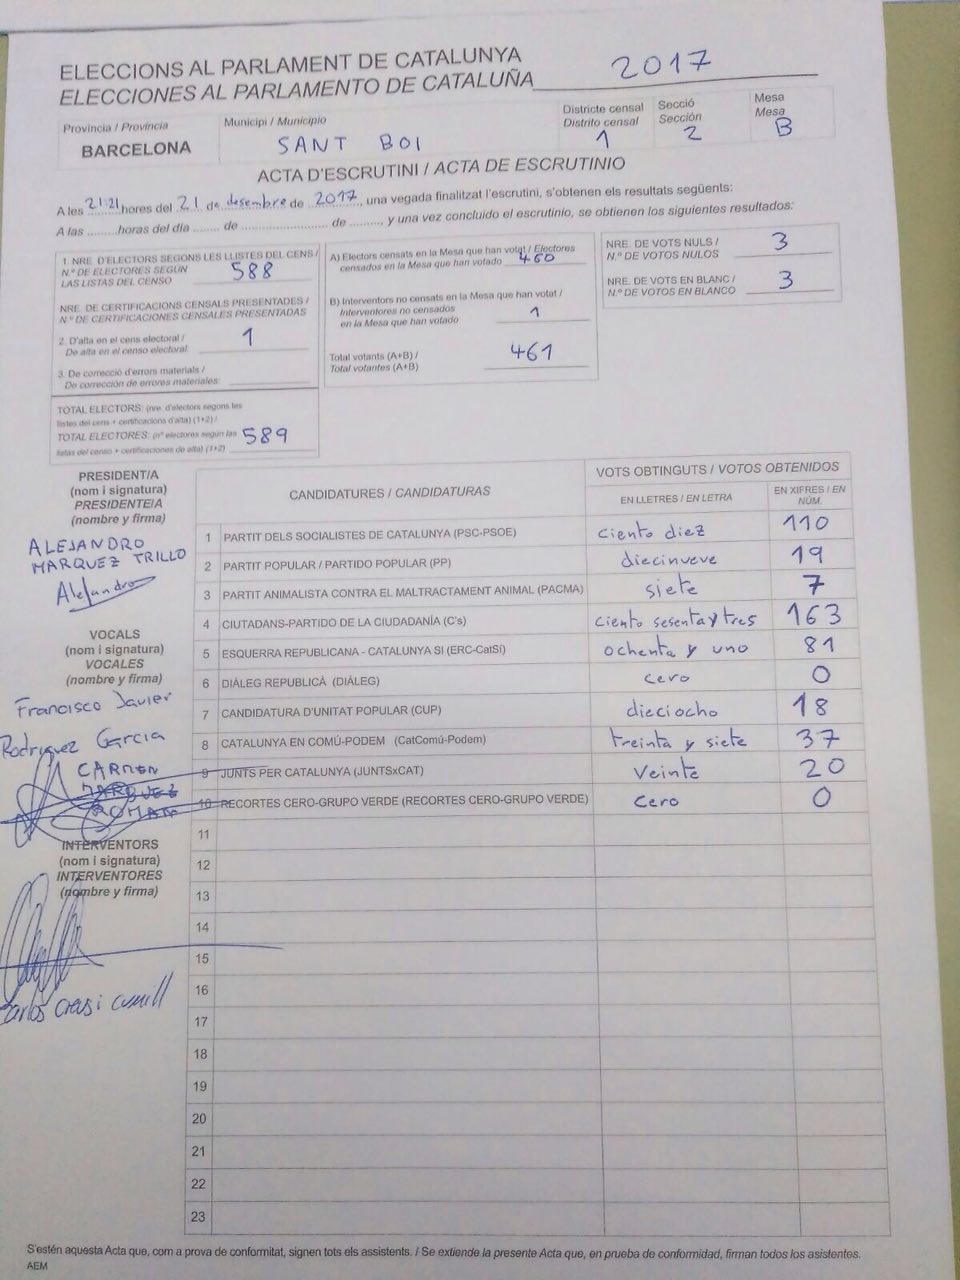 ELECCIONS AL PARLAMENT DE CATALUNYA
ELECCIONES AL PARLAMENTO DE CATALUÑA 2017
Província / Provincia
BARCELONA
Municipi / Municipio
SANT BOI
Districte censal
Distrito censal
1
Secció
Sección
2
Mesa
Mesa
B
ACTA D'ESCRUTINI / ACTA DE ESCRUTINIO
A les 21:21 hores del 21 de desembre de 2017, una vegada finalitzat l'escrutini, s'obtenen els resultats següents:
A las ........horas del día ....... de ...................... de ........, y una vez concluido el escrutinio, se obtienen los siguientes resultados:
1. NRE. D'ELECTORS SEGONS LES LLISTES DEL CENS /
N.º DE ELECTORES SEGÚN
LAS LISTAS DEL CENSO 588
NRE. DE CERTIFICACIONS CENSALS PRESENTADES /
N.º DE CERTIFICACIONES CENSALES PRESENTADAS
2. D'alta en el cens electoral /
De alta en el censo electoral 1
3. De correcció d'errors materials /
De corrección de errores materiales:
TOTAL ELECTORS: (nre. d'electors segons les
llistes del cens + certificacions d'alta) (1+2) /
TOTAL ELECTORES: (nº electores según las
listas del censo + certificaciones de alta) (1+2) 589
A) Electors censats en la Mesa que han votat / Electores
censados en la Mesa que han votado 460
B) Interventors no censats en la Mesa que han votat /
Interventores no censados
en la Mesa que han votado 1
Total votants (A+B) /
Total votantes (A+B) 461
NRE. DE VOTS NULS /
N.º DE VOTOS NULOS 3
NRE. DE VOTS EN BLANC /
N.º DE VOTOS EN BLANCO 3
PRESIDENT/A
(nom i signatura)
PRESIDENTE/A
(nombre y firma)
ALEJANDRO
MARQUEZ TRILLO
Alejandro
VOCALS
(nom i signatura)
VOCALES
(nombre y firma)
Francisco Javier
Rodriguez Garcia
CARMEN
MARQUEZ
ROMAN
INTERVENTORS
(nom i signatura)
INTERVENTORES
(nombre y firma)
Carlos
CANDIDATURES / CANDIDATURAS
VOTS OBTINGUTS / VOTOS OBTENIDOS
EN LLETRES / EN LETRA
EN XIFRES / EN NÚM.
1 PARTIT DELS SOCIALISTES DE CATALUNYA (PSC-PSOE) ciento diez 110
2 PARTIT POPULAR / PARTIDO POPULAR (PP) diecinueve 19
3 PARTIT ANIMALISTA CONTRA EL MALTRACTAMENT ANIMAL (PACMA) siete 7
4 CIUTADANS-PARTIDO DE LA CIUDADANÍA (C's) ciento sesenta y tres 163
5 ESQUERRA REPUBLICANA - CATALUNYA SI (ERC-CatSí) ochenta y uno 81
6 DIÀLEG REPUBLICÀ (DIÀLEG) cero 0
7 CANDIDATURA D'UNITAT POPULAR (CUP) dieciocho 18
8 CATALUNYA EN COMÚ-PODEM (CatComú-Podem) treinta y siete 37
9 JUNTS PER CATALUNYA (JUNTSxCAT) veinte 20
10 RECORTES CERO-GRUPO VERDE (RECORTES CERO-GRUPO VERDE) cero 0
11
12
13
14
15
16
17
18
19
20
21
22
23
S'estén aquesta Acta que, com a prova de conformitat, signen tots els assistents. / Se extiende la presente Acta que, en prueba de conformidad, firman todos los asistentes.
AEM